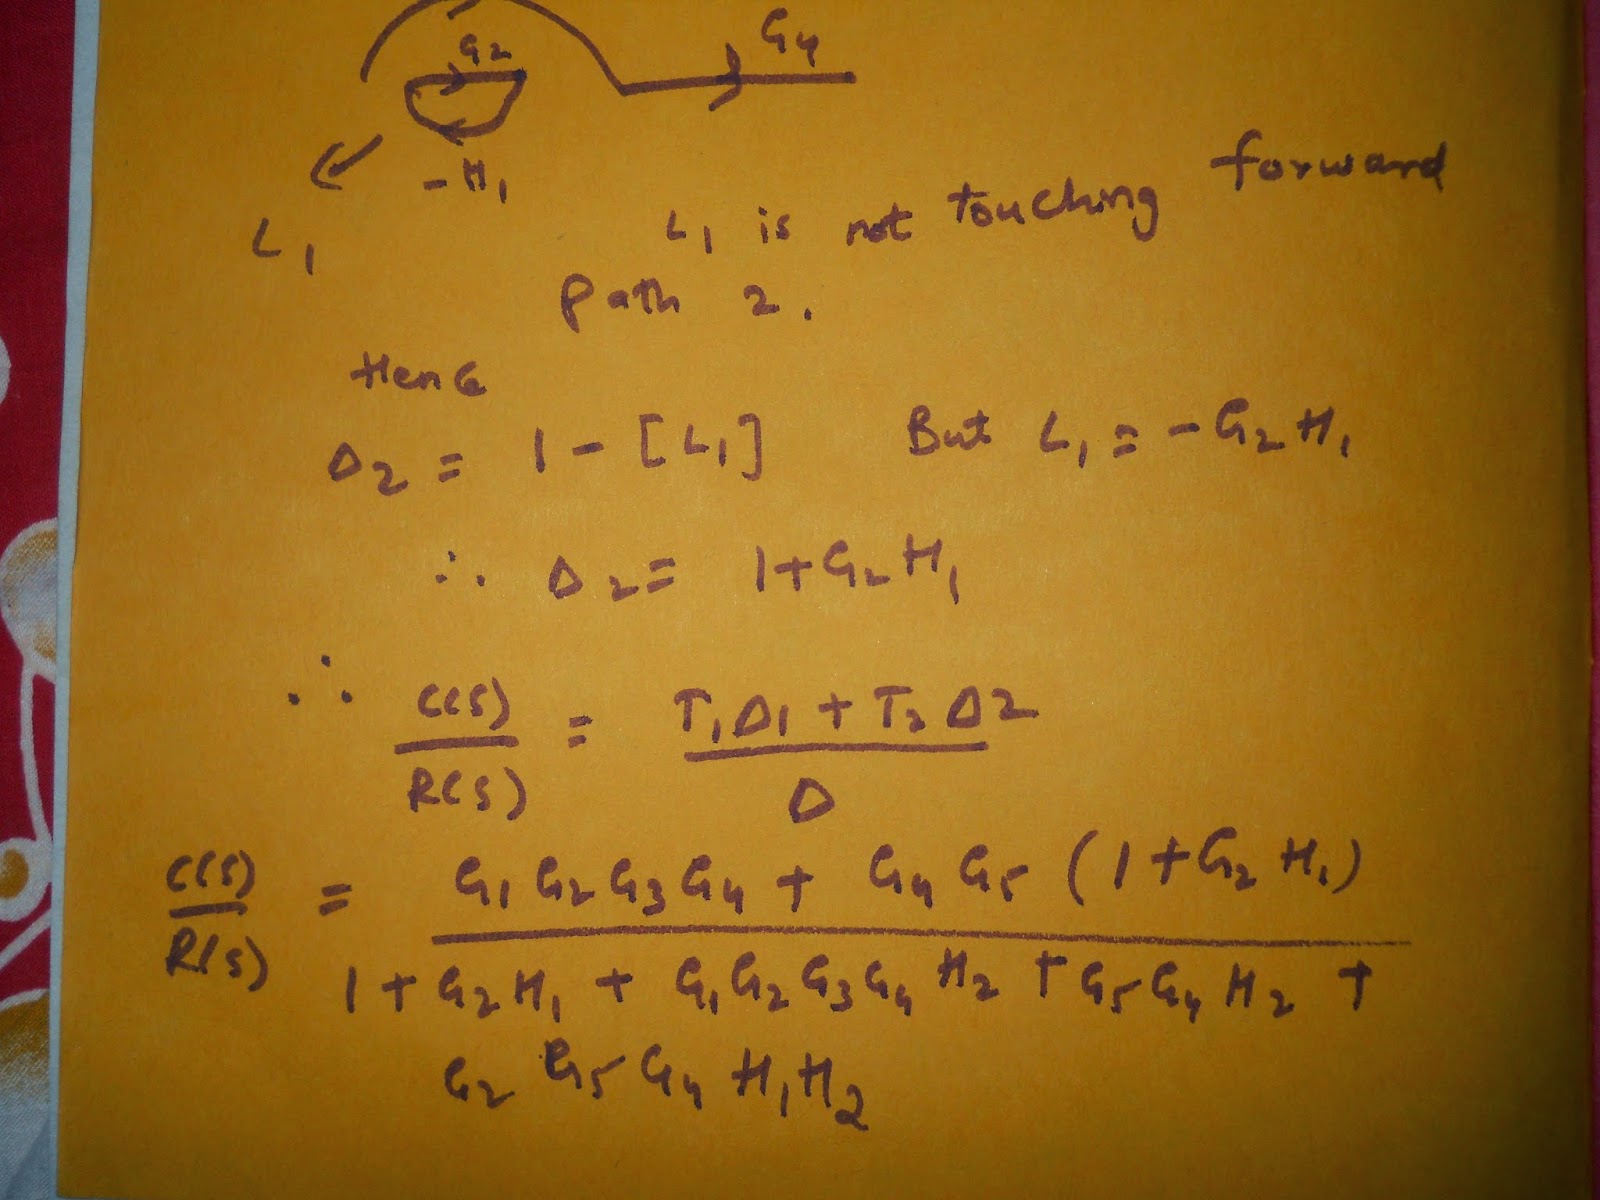 G2 G4
-H1
L1
L1 is not touching forward
path 2.
Hence
Δ2 = 1 - [L1] But L1 = -G2H1
∴ Δ2 = 1+G2H1
∴ C(s)/R(s) = T1Δ1 + T2Δ2 / Δ
C(s)/R(s) = G1G2G3G4 + G4G5 (1+G2H1) /
1+G2H1 + G1G2G3G4H2 + G5G4H2 +
G2G5G4H1H2